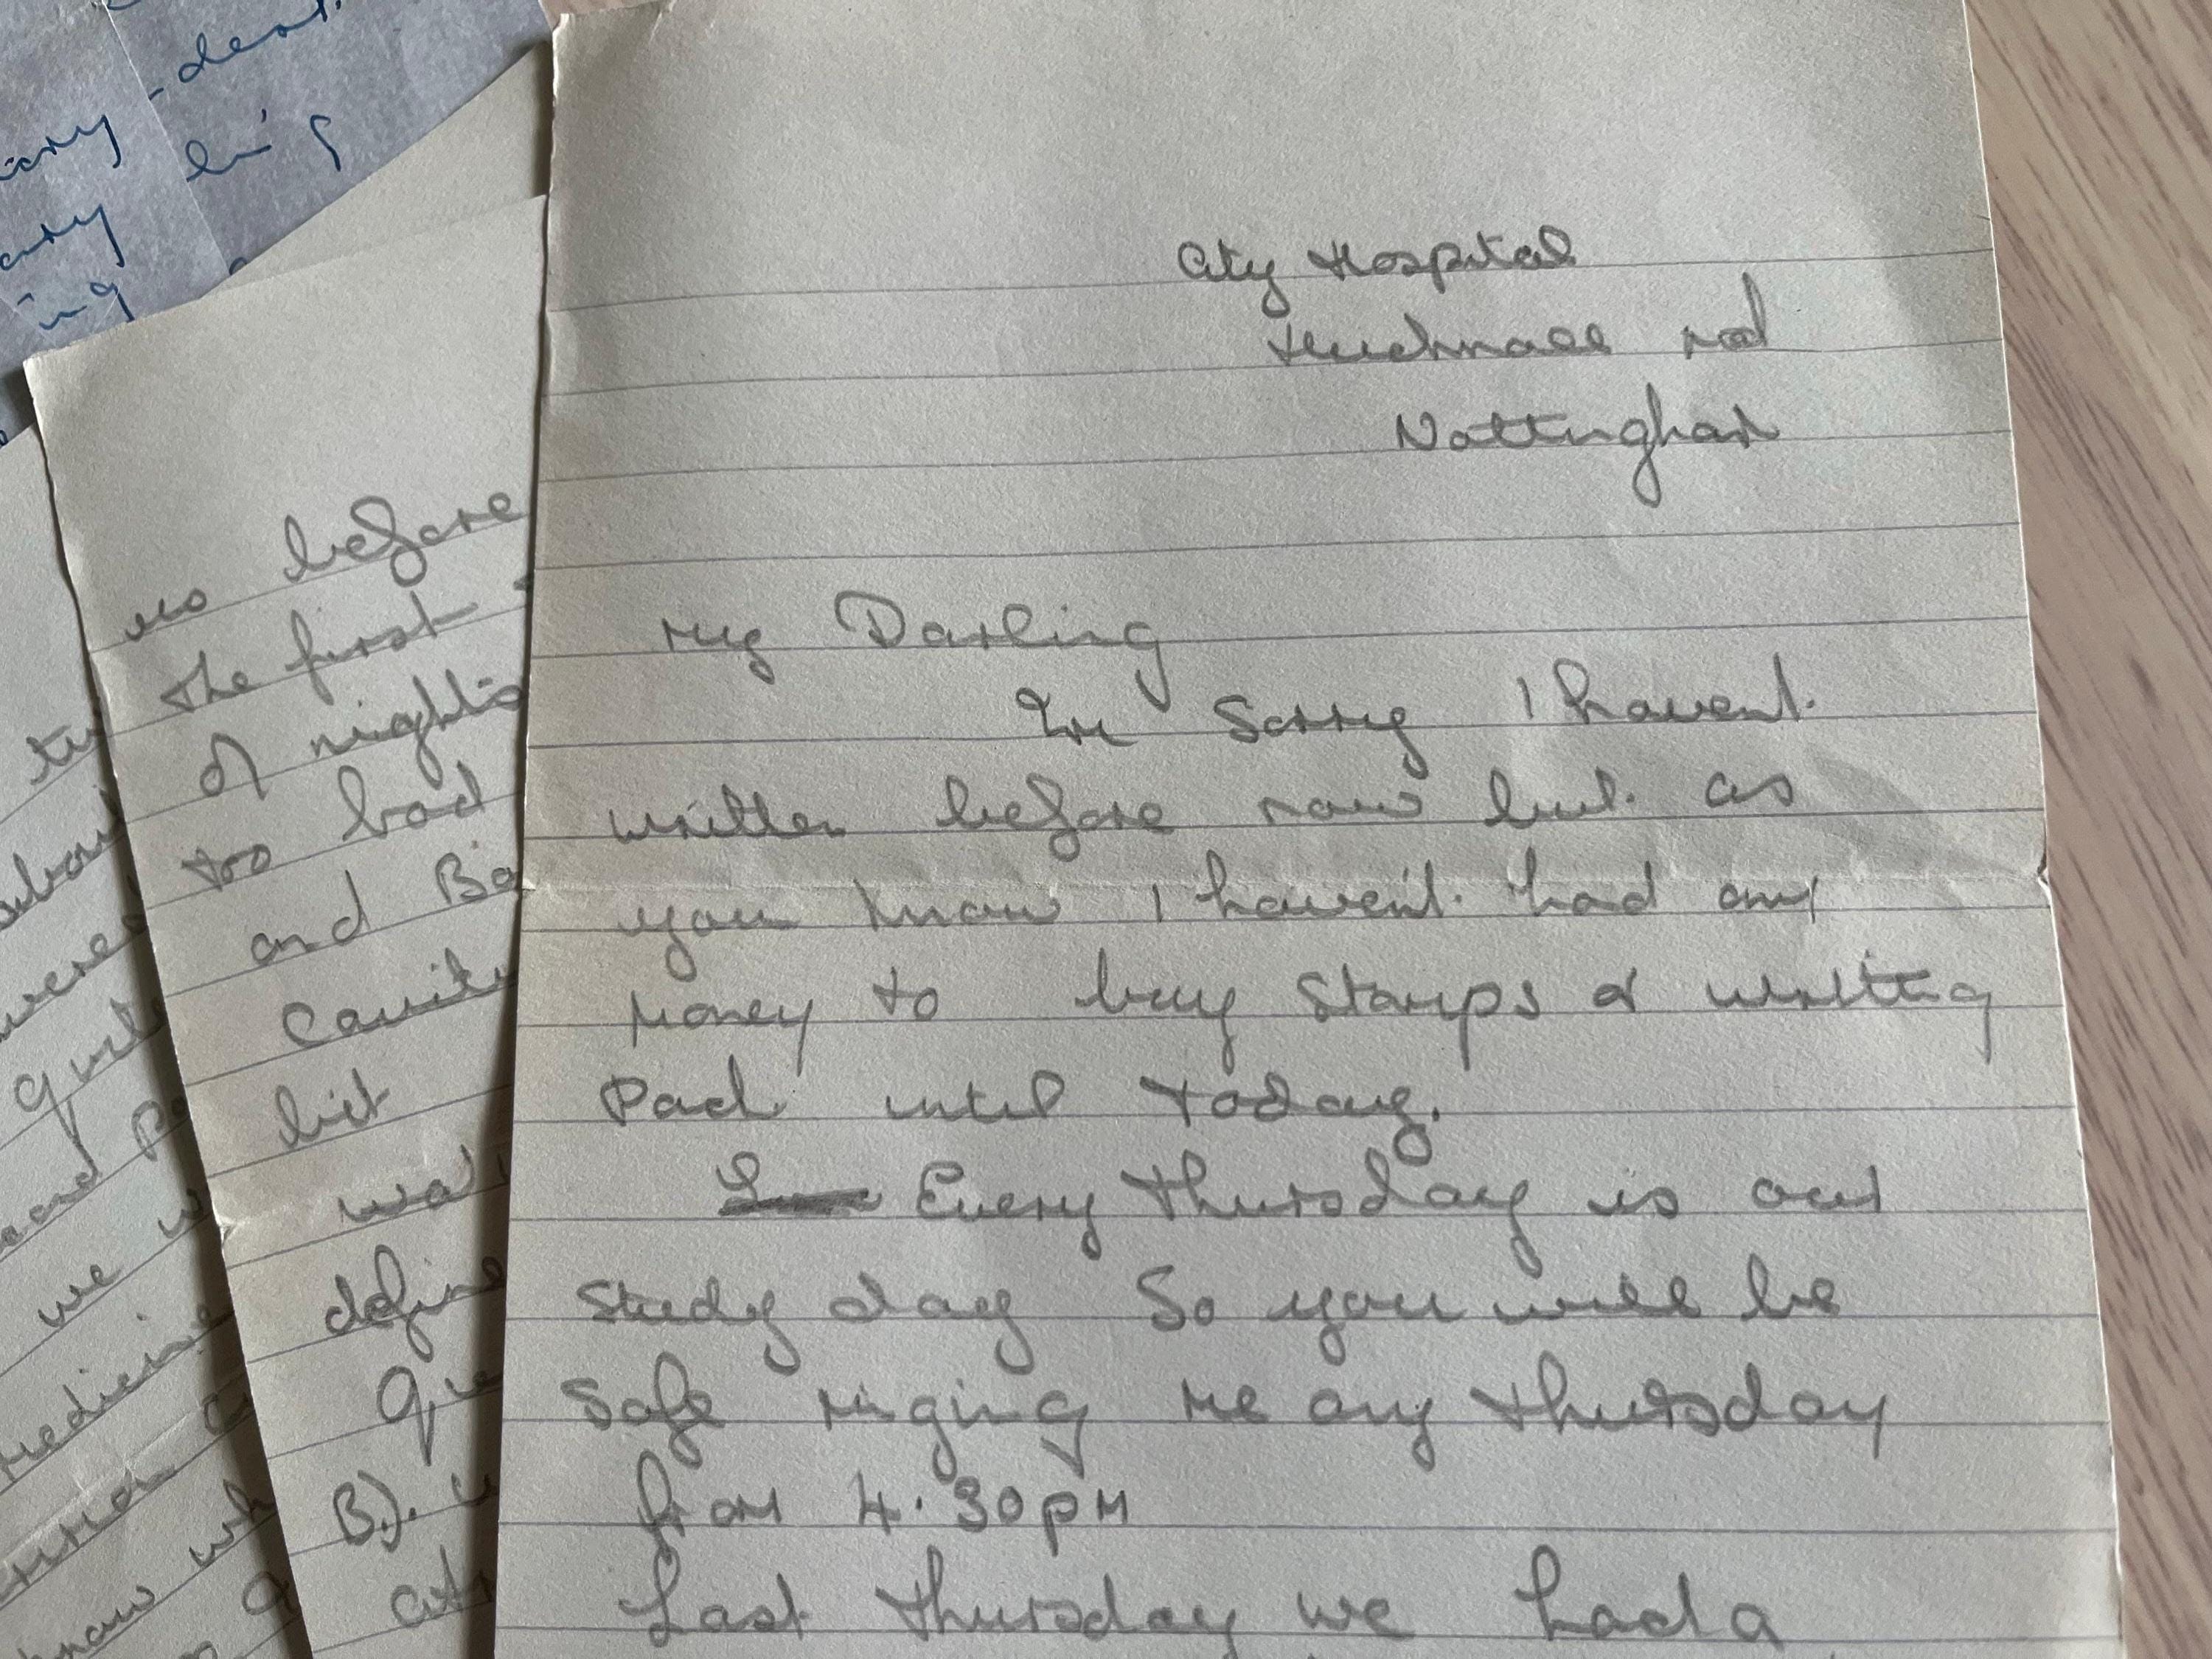 City Hospital
Hucknall rod
Nottingham
My Darling
Im Sorry I havent.
written before now but. as
you know I haven't. had any
Money to buy Stamps & writting
Pad until today.
Every Thursday is our
Study day So you will be
Safe ringing me any Thursday
from 4.30pm
Last Thursday we had a
us before
the first
of nights
too bad
and Ba
Cavity
bit
wa
define
Que
B).
att
about
were
quite
and Pa
we w
medicine
know wh
dear
ing
ary
ing